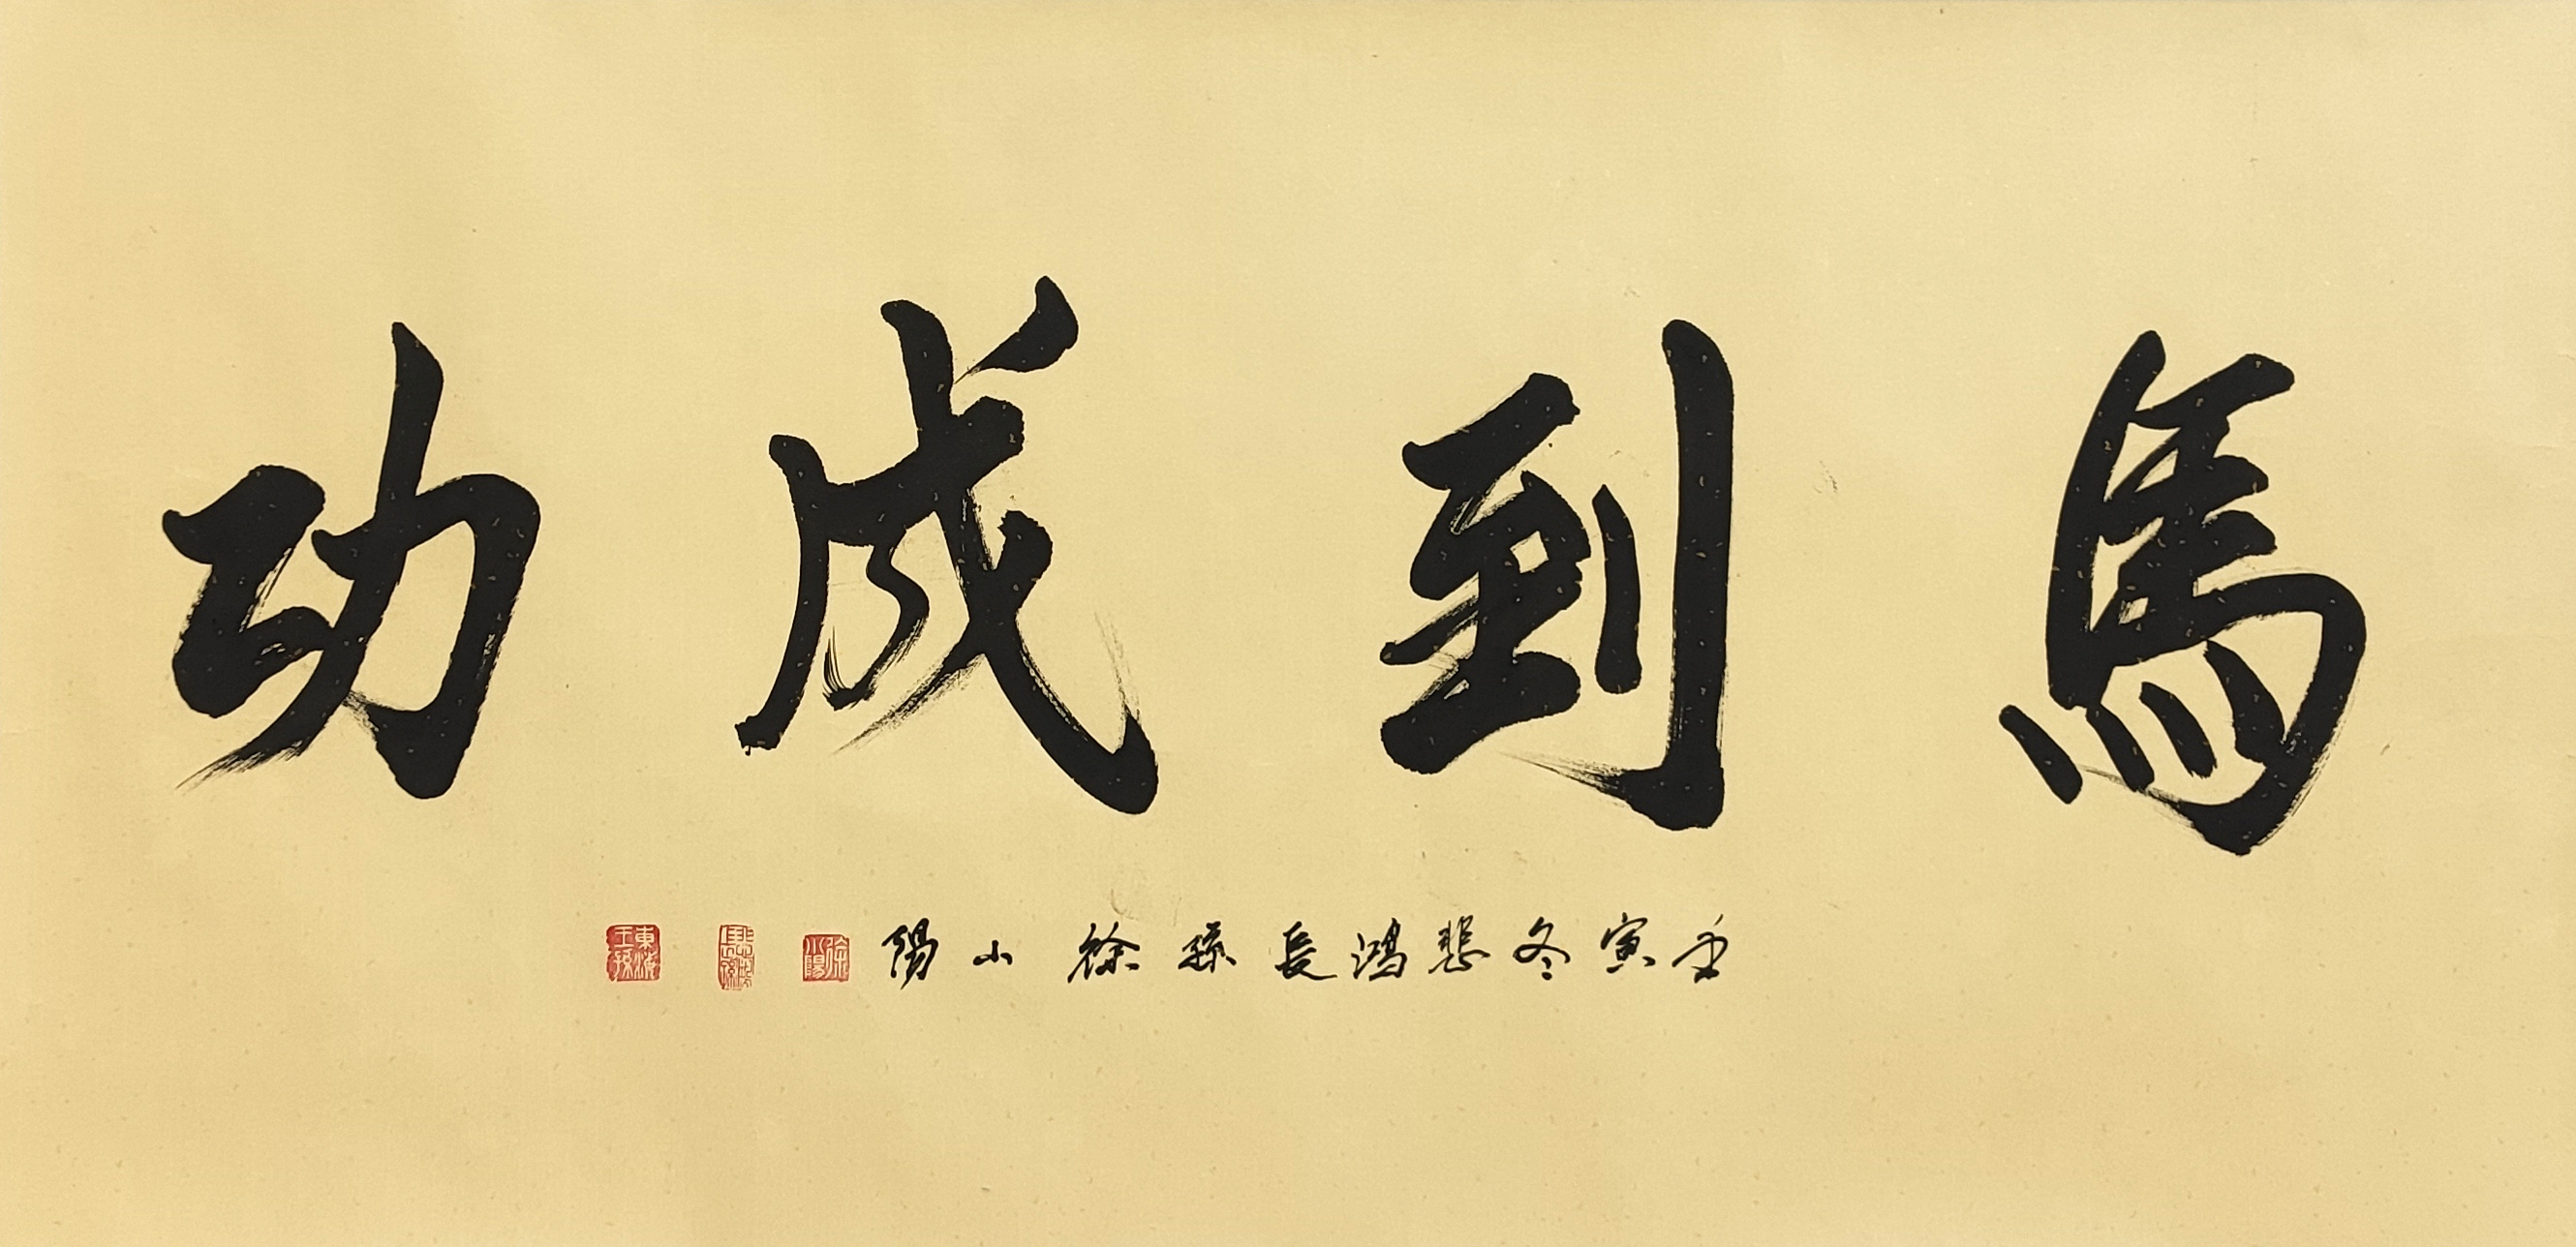 馬到成功
壬寅冬悲鴻長孫徐小陽
徐小陽
悲鴻長孫
東海王孫